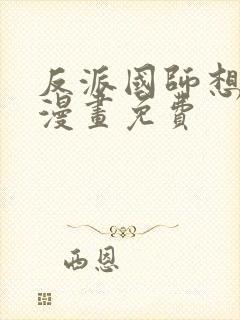 反派國師想
漫畫免費
西恩